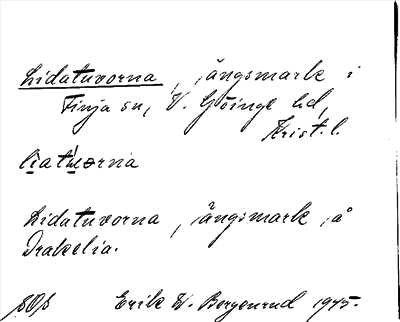 Lidatuvorna, ängsmark i
Finja sn, V. Göinge hd,
Krist. l.
Lidatuvorna, ängsmark å
Drakelia.
Erik W. Bergenrud 1945.